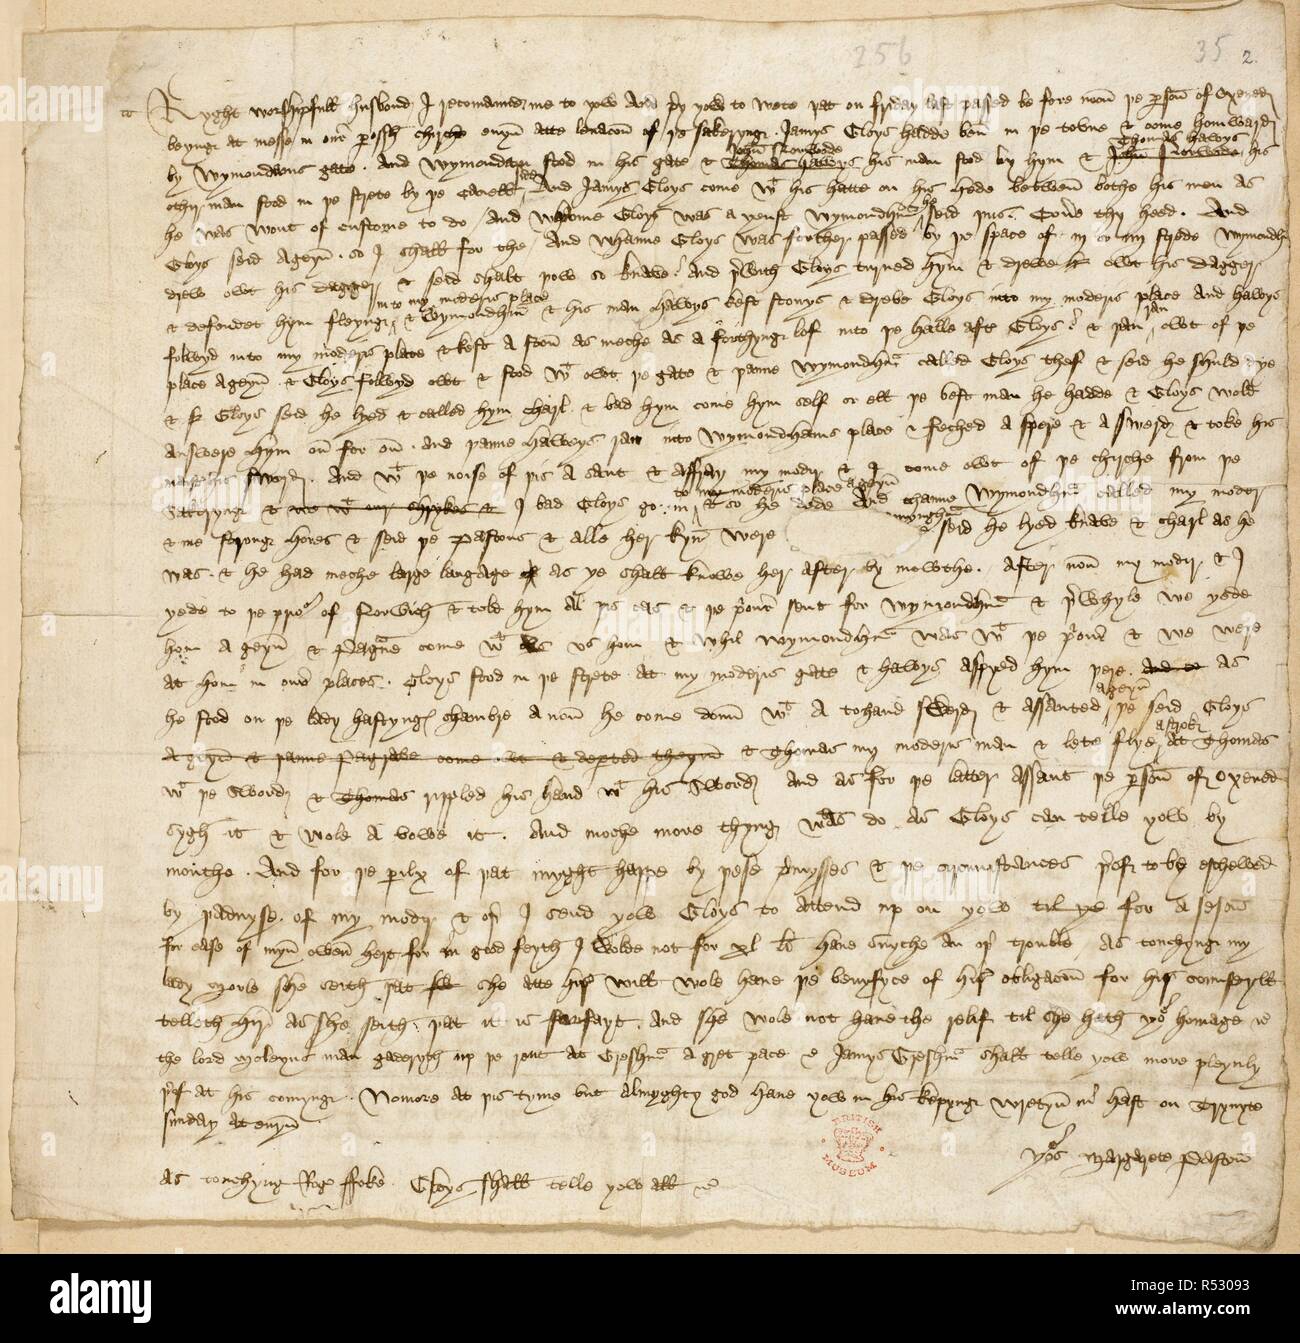 256
35
2
Ryght worshipfull husbond I recomaund me to yow and prey yow to wete þat on Friday last passed be fore noon þe parson of Oxened
beyng at messe in our parossh chirche euyn atte leuacion of þe sakeryng Jamys Gloys hadde ben in þe towne & come homward
by Wymondams gate. And Wymondam stod in his gate & John Norwode his man stod by hym & Thomas Hawys his
othir man stod in þe strete by þe canell side And Jamys Gloys come wt his hatte on his hede betwen bothe his men as
he was wont of custome to do And whanne Gloys was a yenst Wymondham he seid þus. Couere thy heed. And
Gloys seid ageyn. so I shall for the. And whanne Gloys was forther passed by þe space of iij or iiij strede Wymondham
drew owt his dagger & seid shalt þow so knave. And þerwith Gloys turned hym & drewe owt his dagger
& defendet hym fleyng in to my moderis place & Wymondham & his man Hawys kest stonys & dreve Gloys into my moderis place And Hawys
folwyd into my moderis place & kest a ston as meche as a forthyng lof into þe halle after Gloys & þan ran owt of þe
place ageyn. & Gloys folwyd owt & stod wt owt þe gate & þanne Wymondham called Gloys thef & seid he shuld dye
& Gloys seid he lyed & called hym charl. & bad hym come hym self or ell þe best man he hadde & Gloys wold
answere hym on for on. And þanne Haweys ran into Wymondhams place & feched a spere & a swerd & toke his
maister his swerd. And wt þe noise of þis a saut & affray my modir & I come owt of þe chirche from þe
sakeryng & I bad Gloys go in to my moderis place ageyn & so he dede And thanne Wymondham called my moder
& me strong hores & seid þe Pastons & alle her kyn were seid he lyed knave & charl as he
was. & he had meche large langage as ye shall knowe her after by mowthe. After non my modir & I
yede to þe priour of Norwich & told hym al þis cas & þe priour sent for Wymondham & þerwhyle we yede
hom ageyn & Pagraue come wt vs hom & whil Wymondham was wt þe priour & we were
at hom in our places. Gloys stod in þe strete at my moderis gate & Hawys aspyed hym þere as
he stod on þe lady Hastyngs chambre anon he come doun wt a tohand swerd & assauted ageyn þe seid Gloys
& Thomas my moderis man & lete flye a strok at Thomas
wt þe sword & rippled his hand wt his sword And as for þe latter assaut þe parson of Oxened
sygh it & wole a vowe it. And moche more thyng was do as Gloys can telle yow by
mouthe. And for þe perilx of þat myght happe by þese premysses & þe circumstances þerof to be eschewed
by þadvyse of my modir & oþer I send yow Gloys to attend up on yow til for a seson
for ease of myn owen hert for in good feyth I wolde not for xl li haue suyche an oþer trouble As touchyng my
lady Morle she seith þat she atte hir will wole haue þe benyfyce of hir obligacion for hir counseyll
telleth hir as she seith þat it is forfayt And she wole not haue the relif til she hath your homage &c
the lord Moleyns man gaderyth up þe rent at Gresham a gret pace & Jamys Gresham shall telle yow more pleynly
þerof at his comyng. Nomore at þis tyme but Almyghty god haue yow in his kepyng Wretyn in hast on Trynyte
sunday at euyn
Yours Margarete Paston
As touchyng Roger Foke Gloys shall telle yow all &c
BRITISH MUSEUM
alamy
Image ID: R53093
www.alamy.com